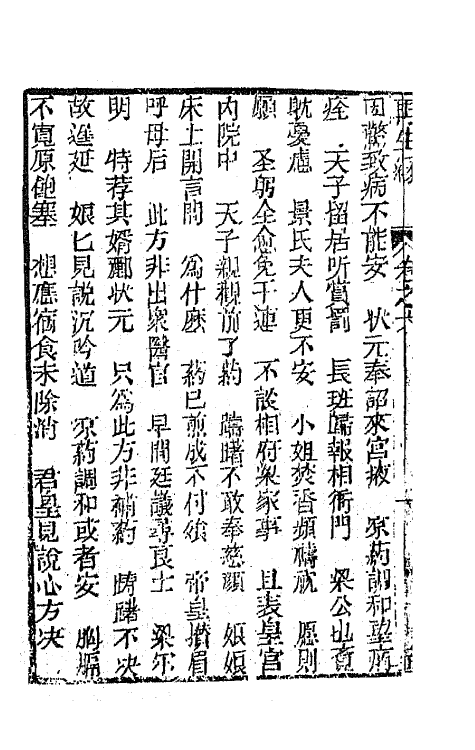 再生緣 卷之六
因驚致病不能安 狀元奉詔來宮掖 原藥調和聖病
痊 天子留居听賞罰 長班歸報相衙門 梁公也竟
耽憂慮 景氏夫人更不安 小姐焚香頻禱祝 愿則
願 聖躬全愈免干連 不談相府梁家事 且表皇宮
內院中 天子親觀前了葯 躊躇不敢奉慈顏 娘娘
床上開言問 為什麽 葯已煎成不付飱 帝皇攢眉
呼母后 此方非出衆醫官 早間廷議尋良士 梁尔
明 特荐其婿酈狀元 只為此方非補葯 躊躇不决
故遲延 娘匕見說沉吟道 原葯調和或者安 胸膈
不寬原飽塞 想應宿食未除消 君皇見說心方决